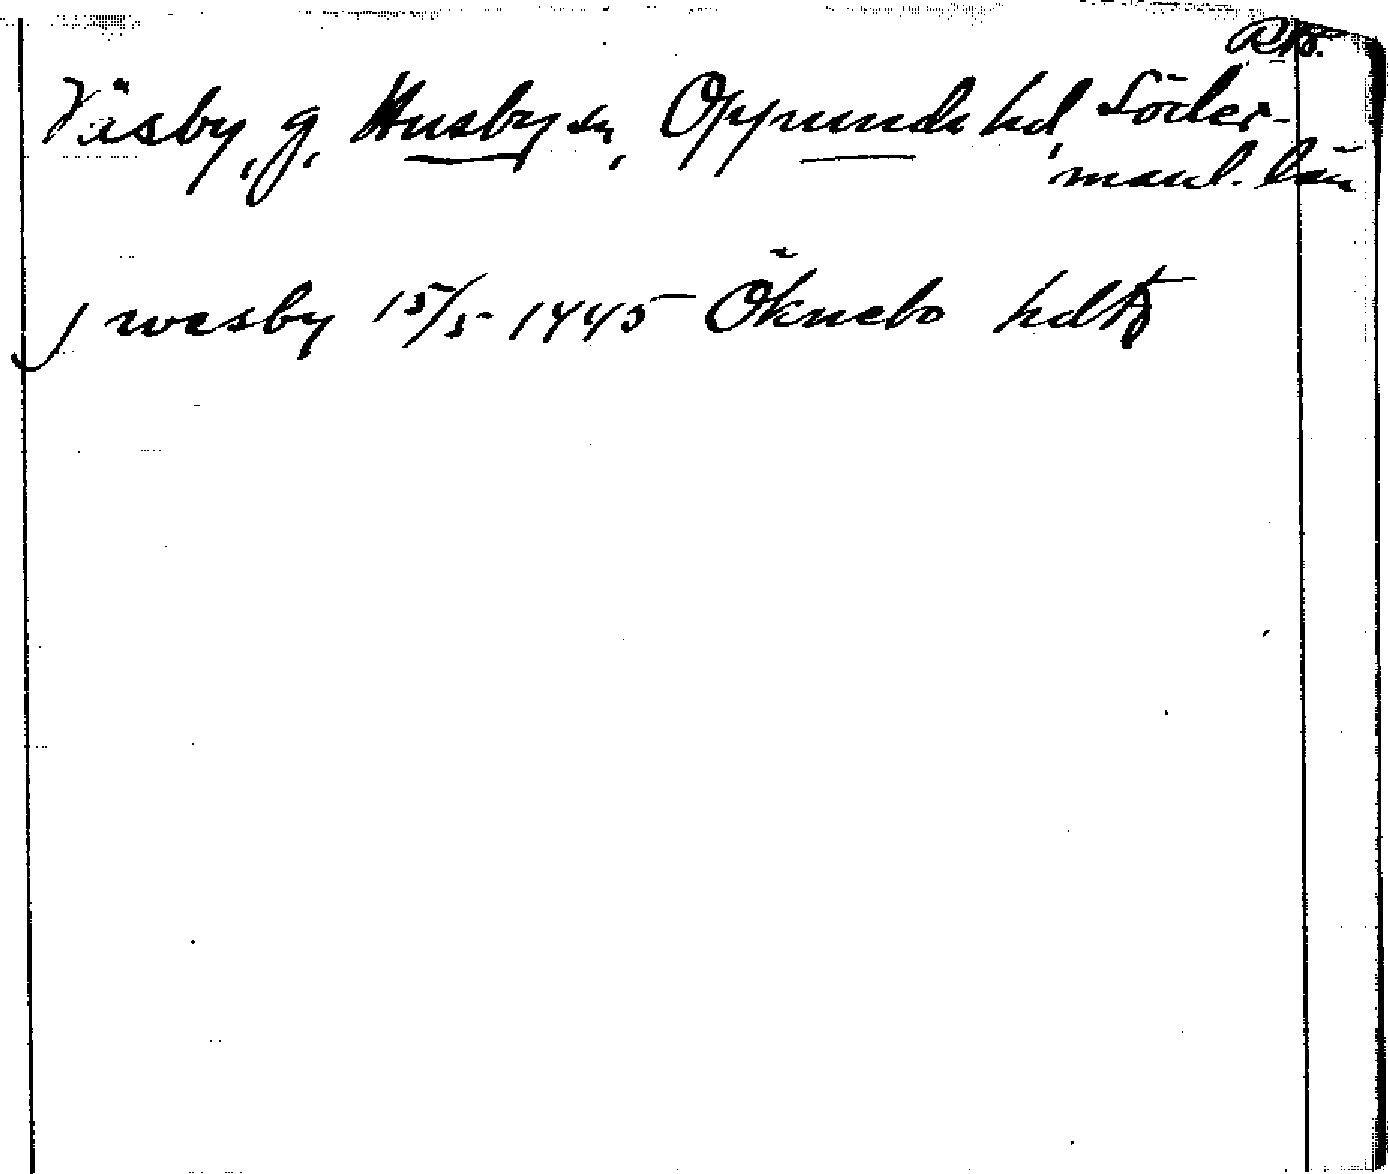 Väsby, g, Husby sn, Oppunda hd, Söder-
manl. län
J wæsby 15/5 1445 Öknebo hdtg